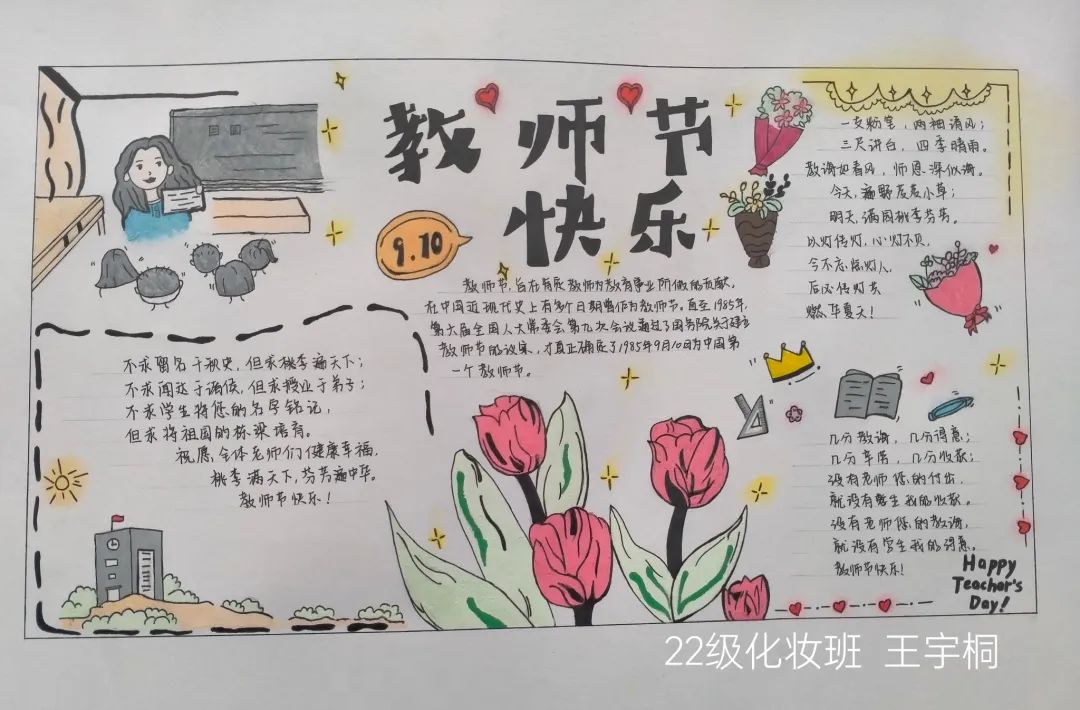 教师节
快乐
9.10
教师节,旨在肯定教师为教育事业所做的贡献。
在中国近现代史上有多个日期曾作为教师节。直至1985年,
第六届全国人大常委会第九次会议通过了国务院关于建立
教师节的议案,才真正确定了1985年9月10日为中国第
一个教师节。
一支粉笔,两袖清风;
三尺讲台,四季晴雨。
教诲如春风,师恩深似海。
今天,遍野友友小草;
明天,满园桃李芬芳。
以灯传灯,心灯不灭,
今不忘燃灯人,
后必传灯火
燃华夏天!
不求留名于秋史,但求桃李遍天下;
不求闻达于诸侯,但求授业于弟子;
不求学生将您的名字铭记,
但求将祖国的栋梁培育。
祝愿全体老师们健康幸福,
桃李满天下,芬芳遍中华。
教师节快乐!
几分教诲,几分得意;
几分辛劳,几分收获;
没有老师您的付出,
就没有学生我的收获。
没有老师您的教诲,
就没有学生我的得意。
教师节快乐!
Happy
Teacher's
Day!
22级化妆班 王宇桐